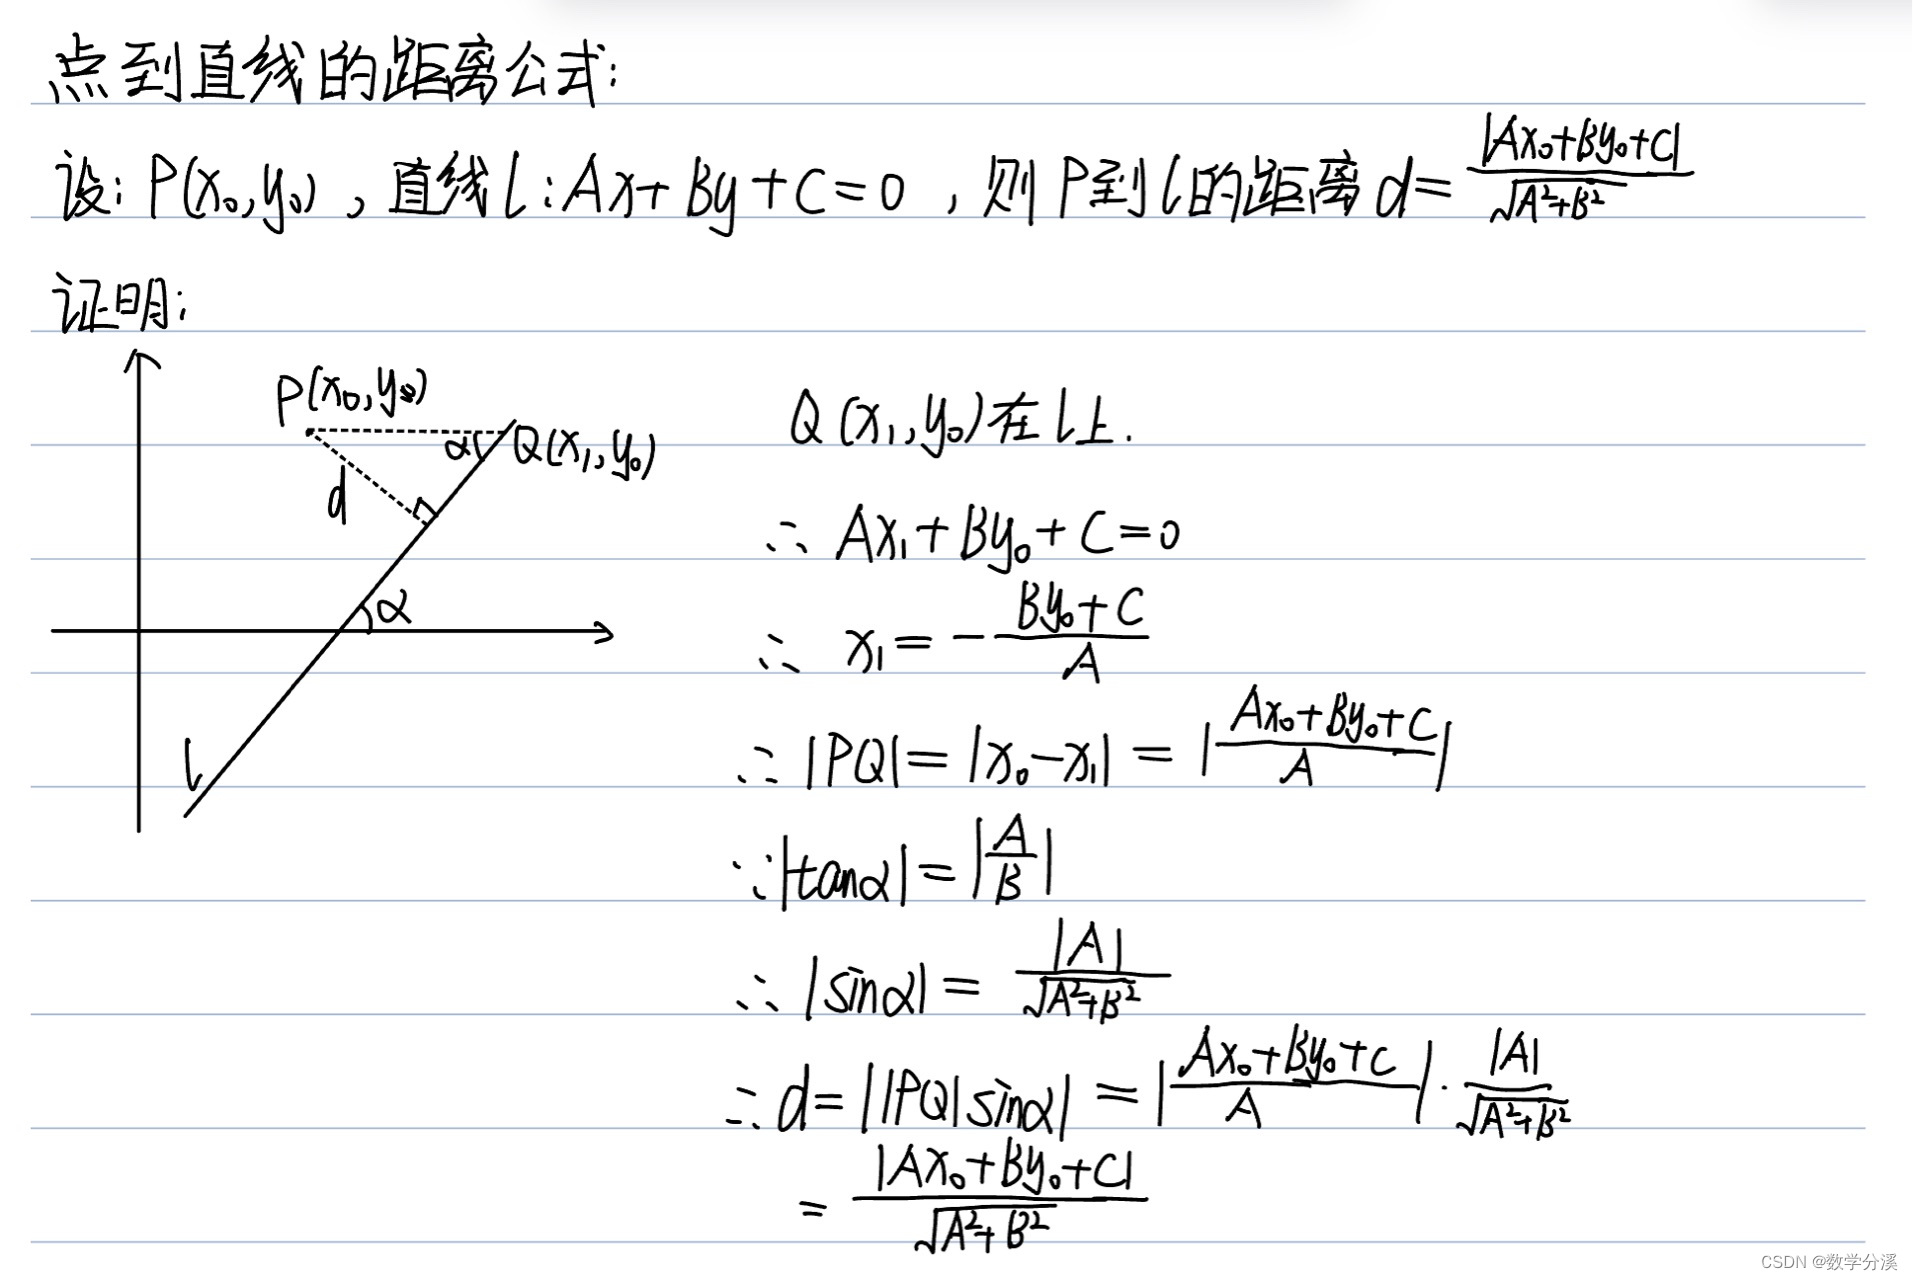 点到直线的距离公式:
设: P(x₀,y₀) , 直线 l : Ax + By + C = 0 , 则 P到 l 的距离 d = |Ax₀+By₀+C| / √(A²+B²)
证明:
P(x₀,y₀)
α
Q(x₁,y₀)
d
α
l
Q (x₁,y₀) 在 l 上.
∴ Ax₁ + By₀ + C = 0
∴ x₁ = - (By₀+C) / A
∴ |PQ| = |x₀-x₁| = | (Ax₀+By₀+C) / A |
∵ |tanα| = | A / B |
∴ |sinα| = |A| / √(A²+B²)
∴ d = ||PQ| sinα| = | (Ax₀+By₀+C) / A | · |A| / √(A²+B²)
= |Ax₀+By₀+C| / √(A²+B²)
CSDN @数学分溪